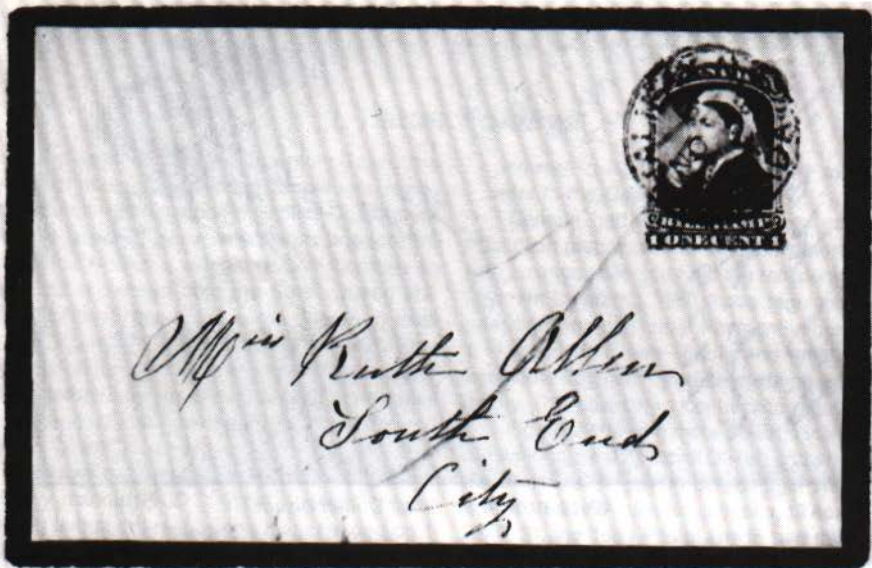 CANADA
BILL STAMP
1 ONE CENT 1
Miss Ruth Allen
South End
City